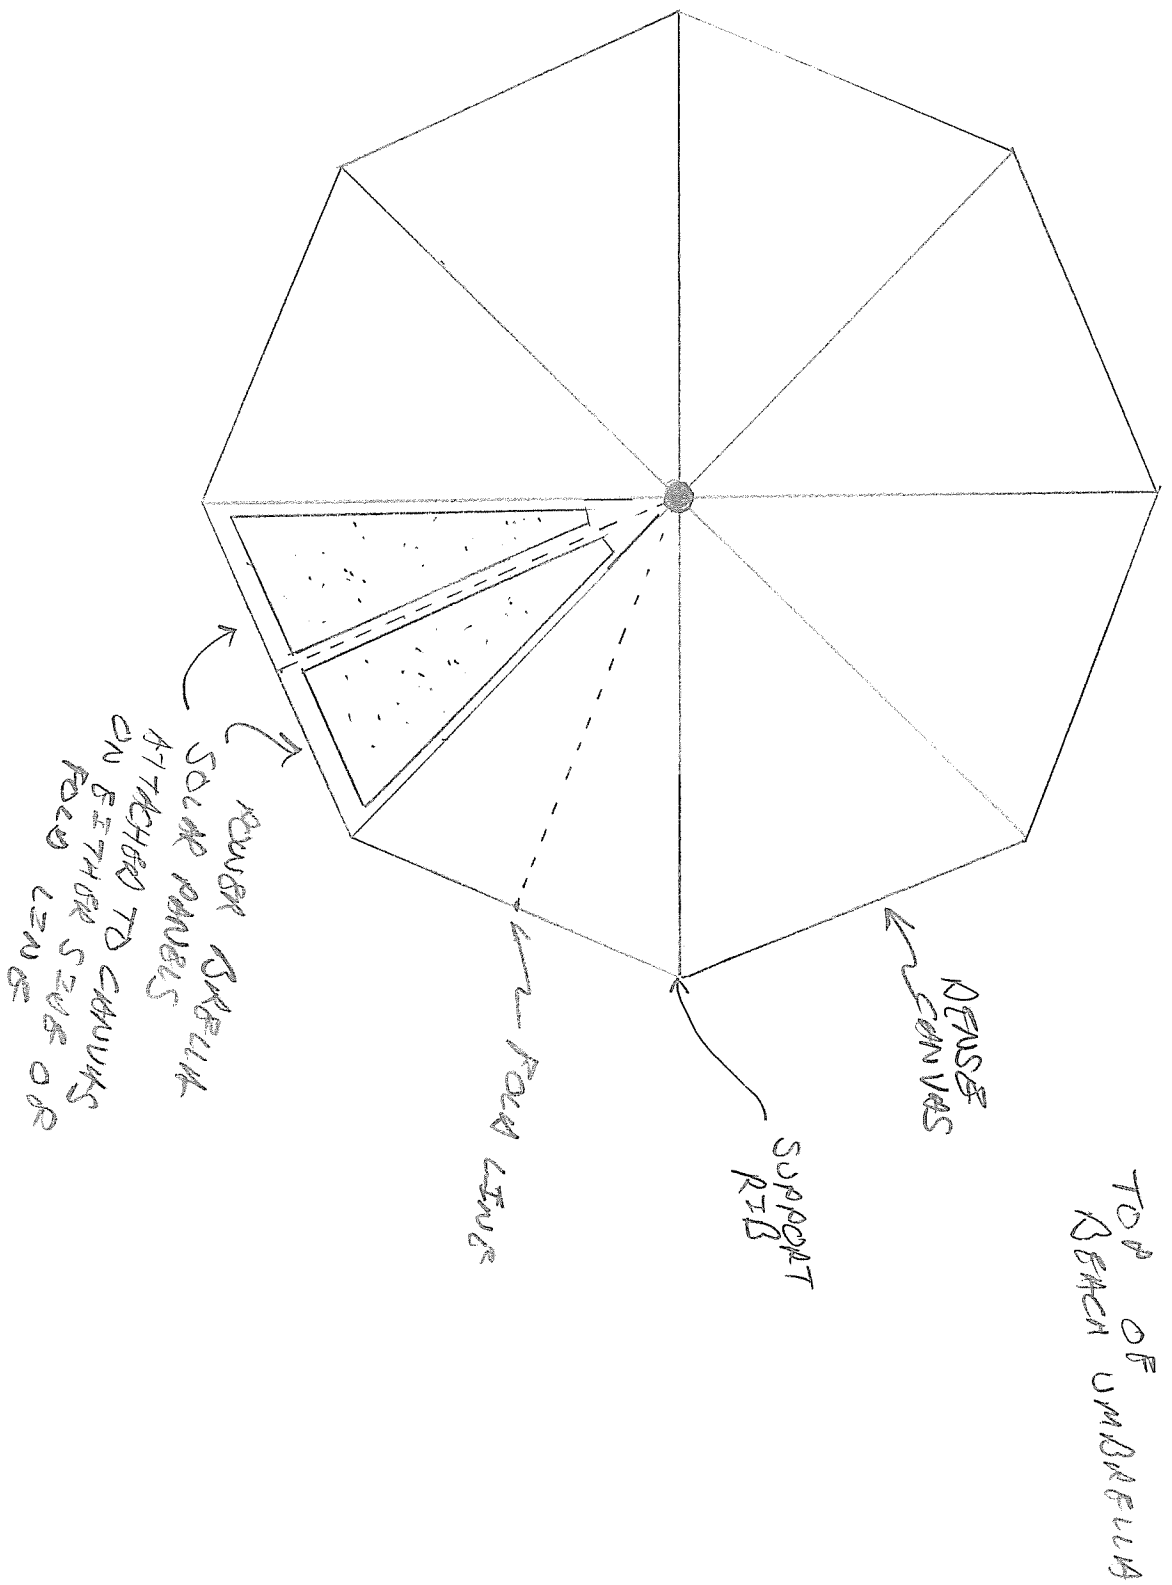 TOP OF
BEACH UMBRELLA
DENSE
CANVAS
SUPPORT
RIB
FOLD LINE
POWER BRELLA
SOLAR PANELS
ATTACHED TO CANVAS
ON EITHER SIDE OF
FOLD LINE